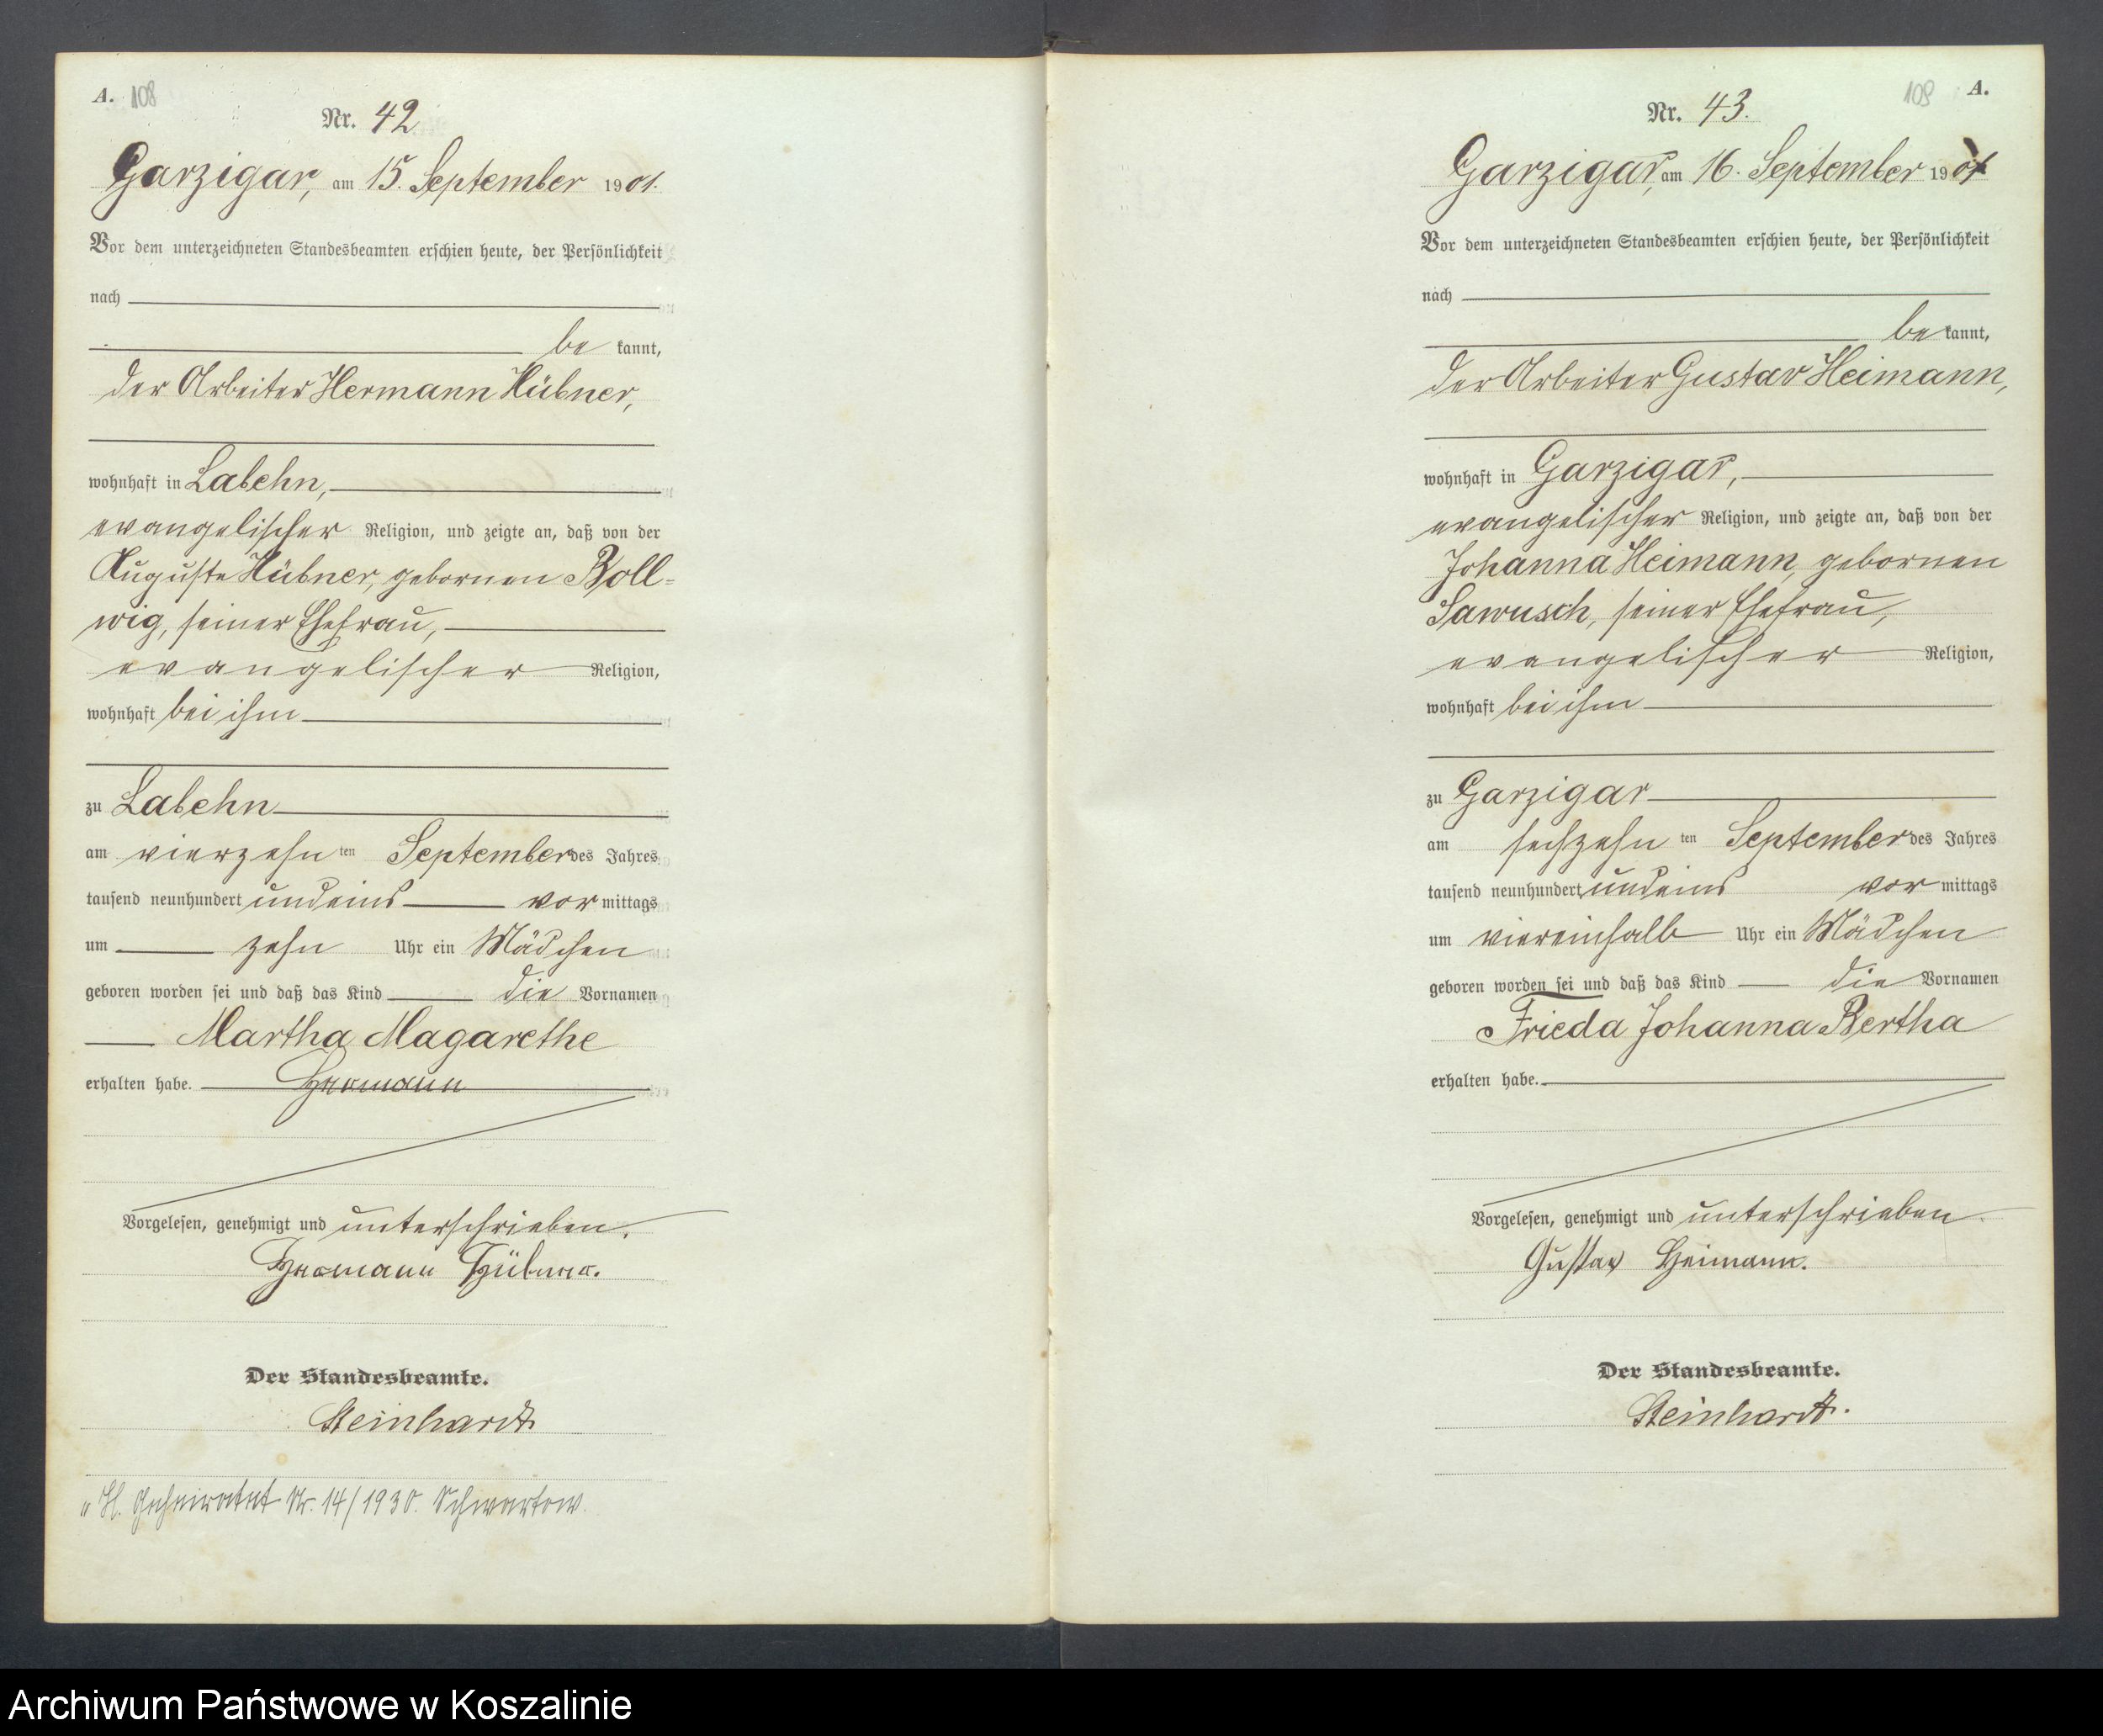 A. 108
Nr. 42
Garzigar, am 15. September 1901.
Vor dem unterzeichneten Standesbeamten erschien heute, der Persönlichkeit
nach
be kannt,
der Arbeiter Hermann Hübner,
wohnhaft in Labehn,
evangelischer Religion, und zeigte an, daß von der
Auguste Hübner, gebornen Boll-
wig, seiner Ehefrau,
evangelischer Religion,
wohnhaft bei ihm
zu Labehn
am vierzehn ten September des Jahres
tausend neunhundert undeins vor mittags
um zehn Uhr ein Mädchen
geboren worden sei und daß das Kind die Vornamen
Martha Magarethe
erhalten habe. Hermann
Vorgelesen, genehmigt und unterschrieben.
Hermann Hübner.
Der Standesbeamte.
Steinhardt
Geheiratet Nr. 14/1930. Schwartow.
109 A.
Nr. 43.
Garzigar, am 16. September 1901
Vor dem unterzeichneten Standesbeamten erschien heute, der Persönlichkeit
nach
be kannt,
der Arbeiter Gustav Heimann,
wohnhaft in Garzigar,
evangelischer Religion, und zeigte an, daß von der
Johanna Heimann, gebornen
Sawusch, seiner Ehefrau,
evangelischer Religion,
wohnhaft bei ihm
zu Garzigar
am sechzehn ten September des Jahres
tausend neunhundert undeins vor mittags
um viereinhalb Uhr ein Mädchen
geboren worden sei und daß das Kind die Vornamen
Frieda Johanna Bertha
erhalten habe.
Vorgelesen, genehmigt und unterschrieben.
Gustav Heimann.
Der Standesbeamte.
Steinhardt.
Archiwum Państwowe w Koszalinie